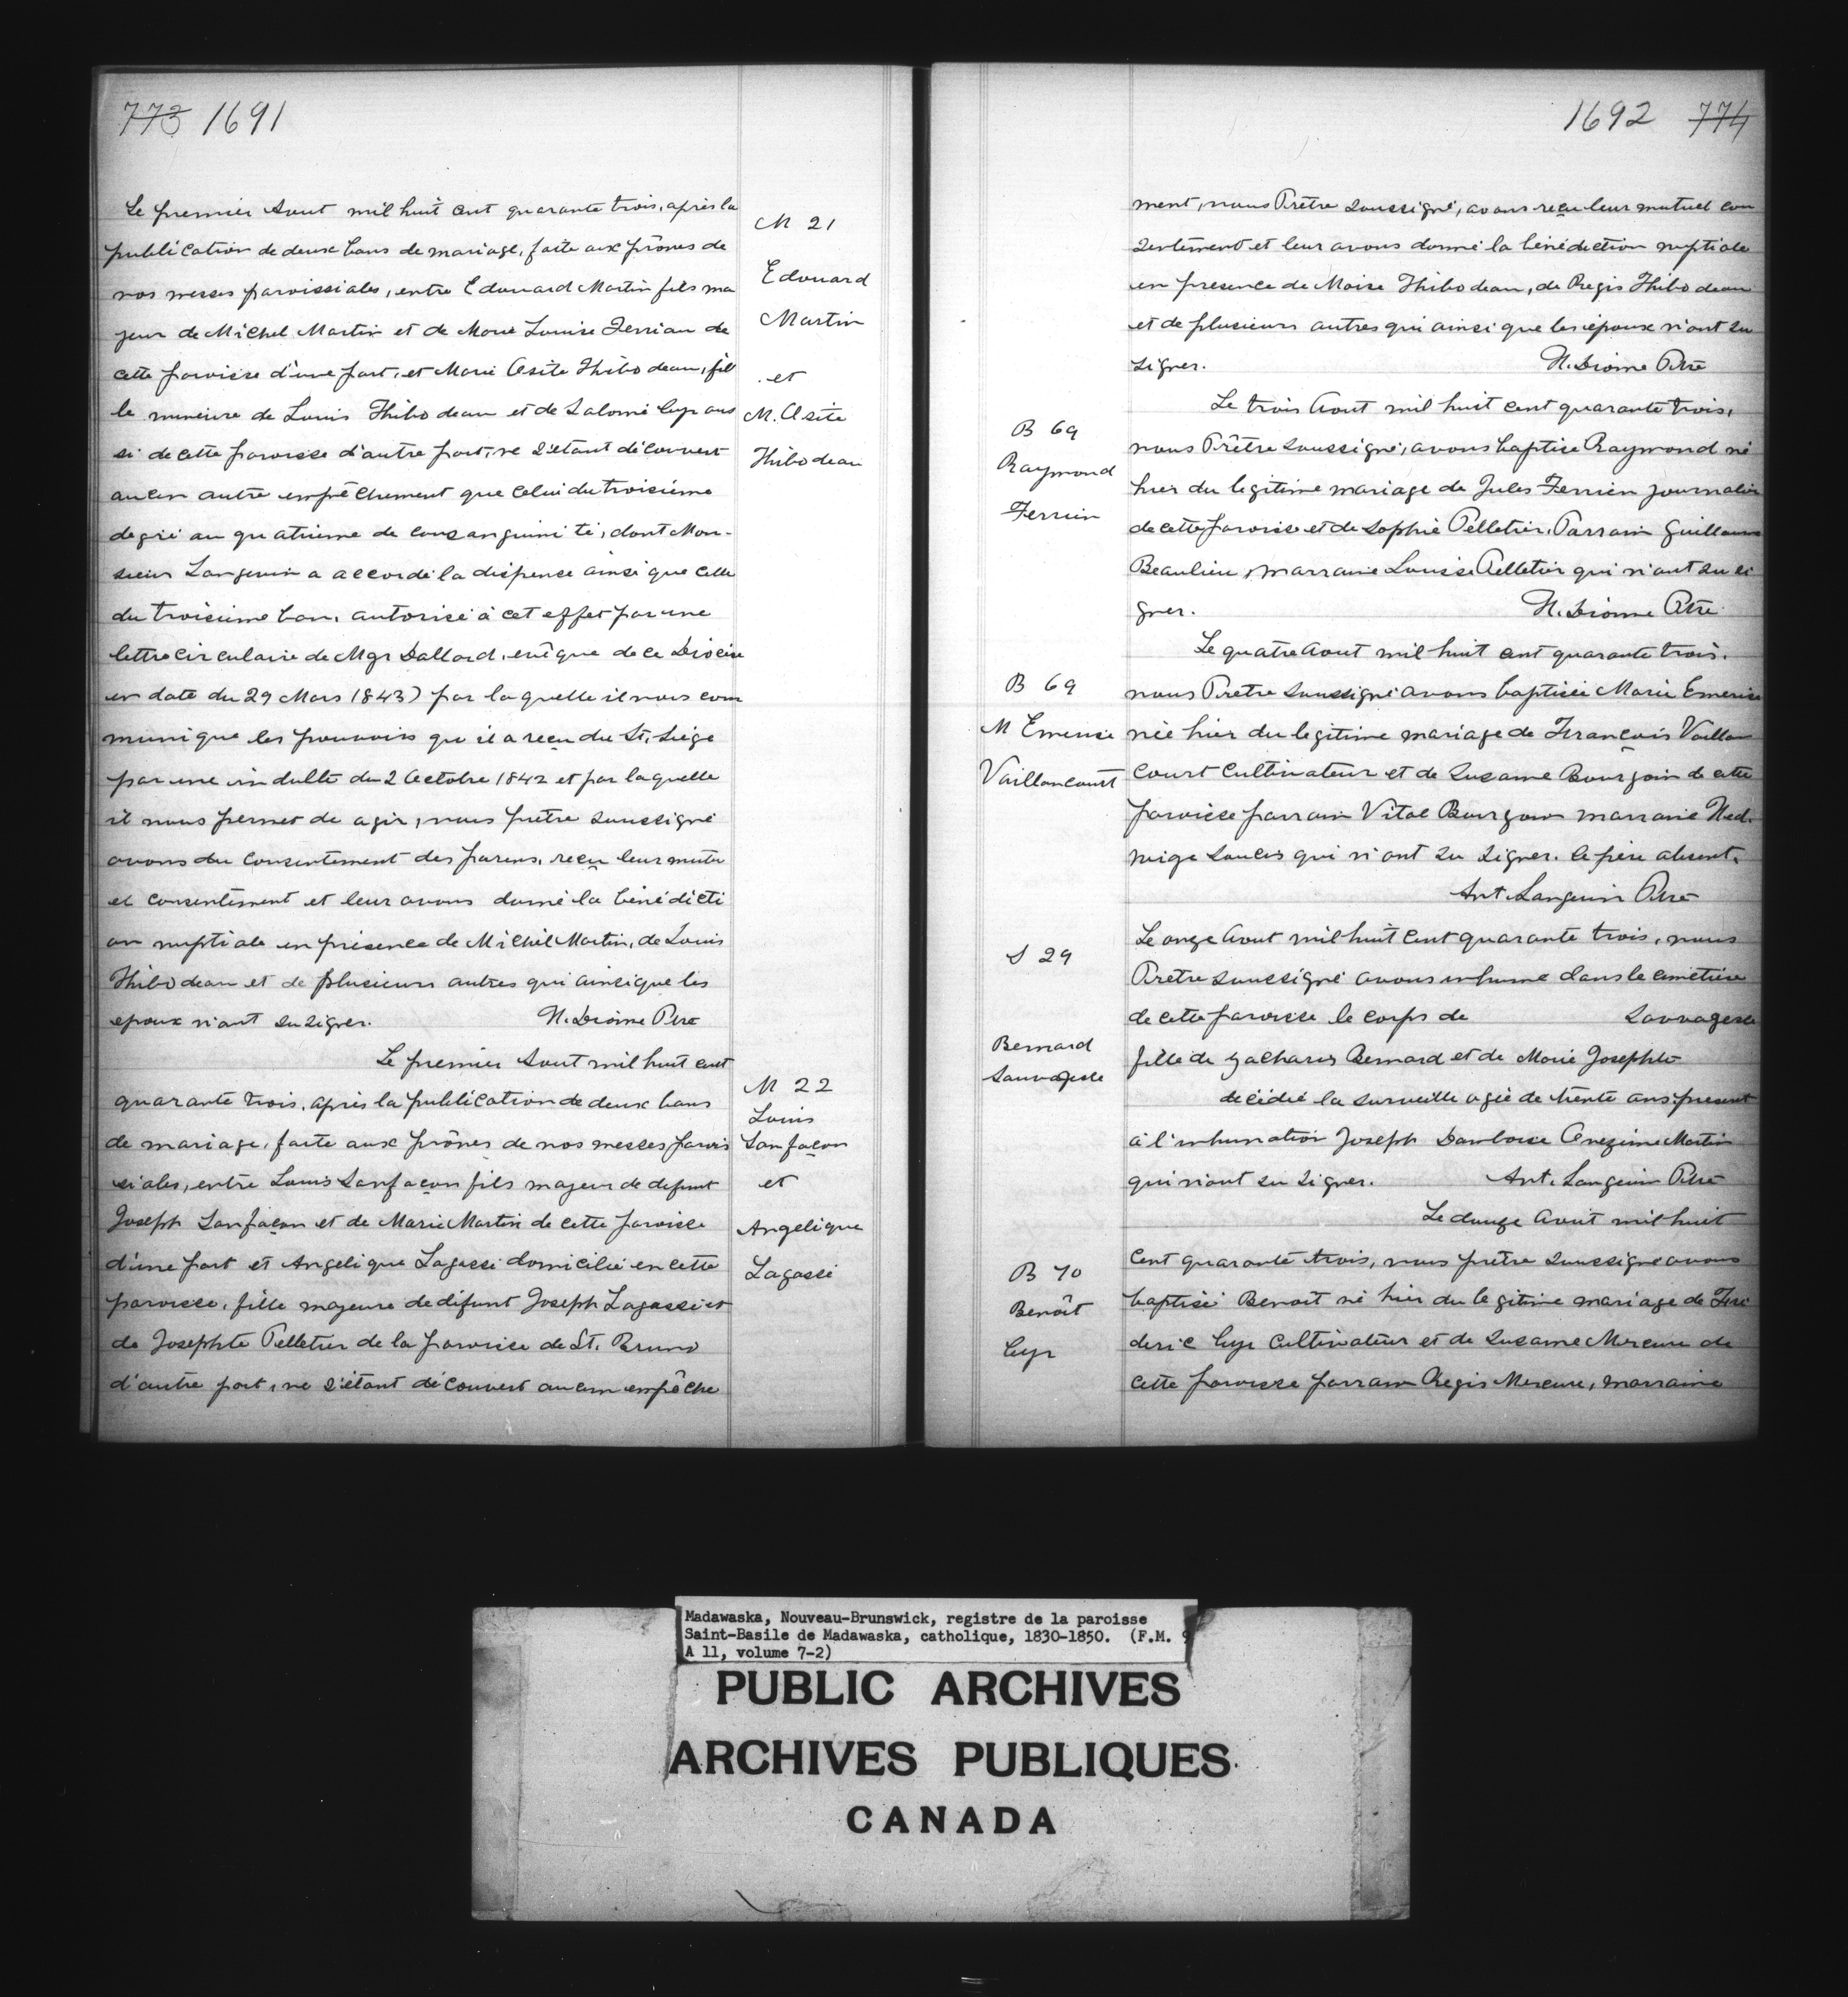 773 1691
Le premier Aout mil huit cent quarante trois, après la
publication de deux bans de mariage, faite aux prônes de
nos messes paroissiales, entre Edouard Martin fils ma
jeur de Michel Martin et de Marie Louise Terriau de
cette paroisse d'une part, et Marie Osite Thibodeau, fil
le mineure de Louis Thibodeau et de Salomé Cyr aus
si de cette paroisse d'autre part, ne s'étant découvert
aucun autre empêchement que celui du troisième
degré au quatrième de consanguinité, dont Mon-
sieur Langevin a accordé la dispense ainsi que celle
du troisième ban, autorisé à cet effet par une
lettre circulaire de Mgr Dallard, evêque de ce Diocèse
en date du 29 Mars 1843) par laquelle il nous com
munique les pouvoirs qu'il a reçu du St. Siége
par une indulte du 2 Octobre 1842 et par laquelle
il nous permet de agir, nous prêtre soussigné
avons du consentement des parens, reçu leur mutu
el consentement et leur avons donné la bénédicti
on nuptiale en présence de Michel Martin, de Louis
Thibodeau et de plusieurs autres qui ainsi que les
epoux n'ont su signer. H. Dionne Ptre
Le premier Aout mil huit cent
quarante trois, après la publication de deux bans
de mariage, faite aux prônes de nos messes parois
siales, entre Louis Sanfaçon fils majeur de defunt
Joseph Sanfaçon et de Marie Martin de cette paroisse
d'une part et Angelique Lagassé domiciliée en cette
paroisse, fille majeure de défunt Joseph Lagassé et
de Josephte Pelletier de la paroisse de St. Bruno
d'autre part, ne s'étant découvert aucun empêche
M 21
Edouard
Martin
et
M. Osite
Thibodeau
M 22
Louis
Sanfaçon
et
Angelique
Lagassé
1692 774
ment, nous Prêtre soussigné, avons reçu leur mutuel con
sentement et leur avons donné la bénédiction nuptiale
en présence de Moise Thibodeau, de Regis Thibodeau
et de plusieurs autres qui ainsi que les époux n'ont su
signer. H. Dionne Ptre
Le trois Aout mil huit cent quarante trois,
nous Prêtre soussigné, avons baptisé Raymond né
hier du legitime mariage de Jules Terrien journalier
de cette paroisse et de Sophie Pelletier. Parrain Guillaume
Beaulieu, marraine Louise Pelletier qui n'ont su si
gner. H. Dionne Ptre
Le quatre Aout mil huit cent quarante trois,
nous Prêtre soussigné avons baptisée Marie Emerise
née hier du legitime mariage de François Vaillan
court cultivateur et de Susanne Bourgoin de cette
paroisse parrain Vital Bourgoin marraine Hed.
wige Soucis qui n'ont su signer. le père absent.
Ant. Langevin Ptre
Le onze Aout mil huit cent quarante trois, nous
Prêtre soussigné avons inhumé dans le cimetière
de cette paroisse le corps de Sauvagesse
fille de Zacharis Bernard et de Marie Josephte
décédée la surveille agée de trente ans present
à l'inhumation Joseph Damboise Onezime Martin
qui n'ont su signer. Ant. Langevin Ptre
Le douze Aout mil huit
cent quarante trois, nous prêtre soussigné avons
baptisé Benoît né hier du legitime mariage de Fré
deric Cyr cultivateur et de Susanne Mercure de
cette paroisse parrain Regis Mercure, marraine
B 69
Raymond
Terrien
B 69
M Emerise
Vaillancourt
S 29
Bernard
Sauvagesse
B 70
Benoît
Cyr
Madawaska, Nouveau-Brunswick, registre de la paroisse
Saint-Basile de Madawaska, catholique, 1830-1850. (F.M. 9
A 11, volume 7-2)
PUBLIC ARCHIVES
ARCHIVES PUBLIQUES
CANADA